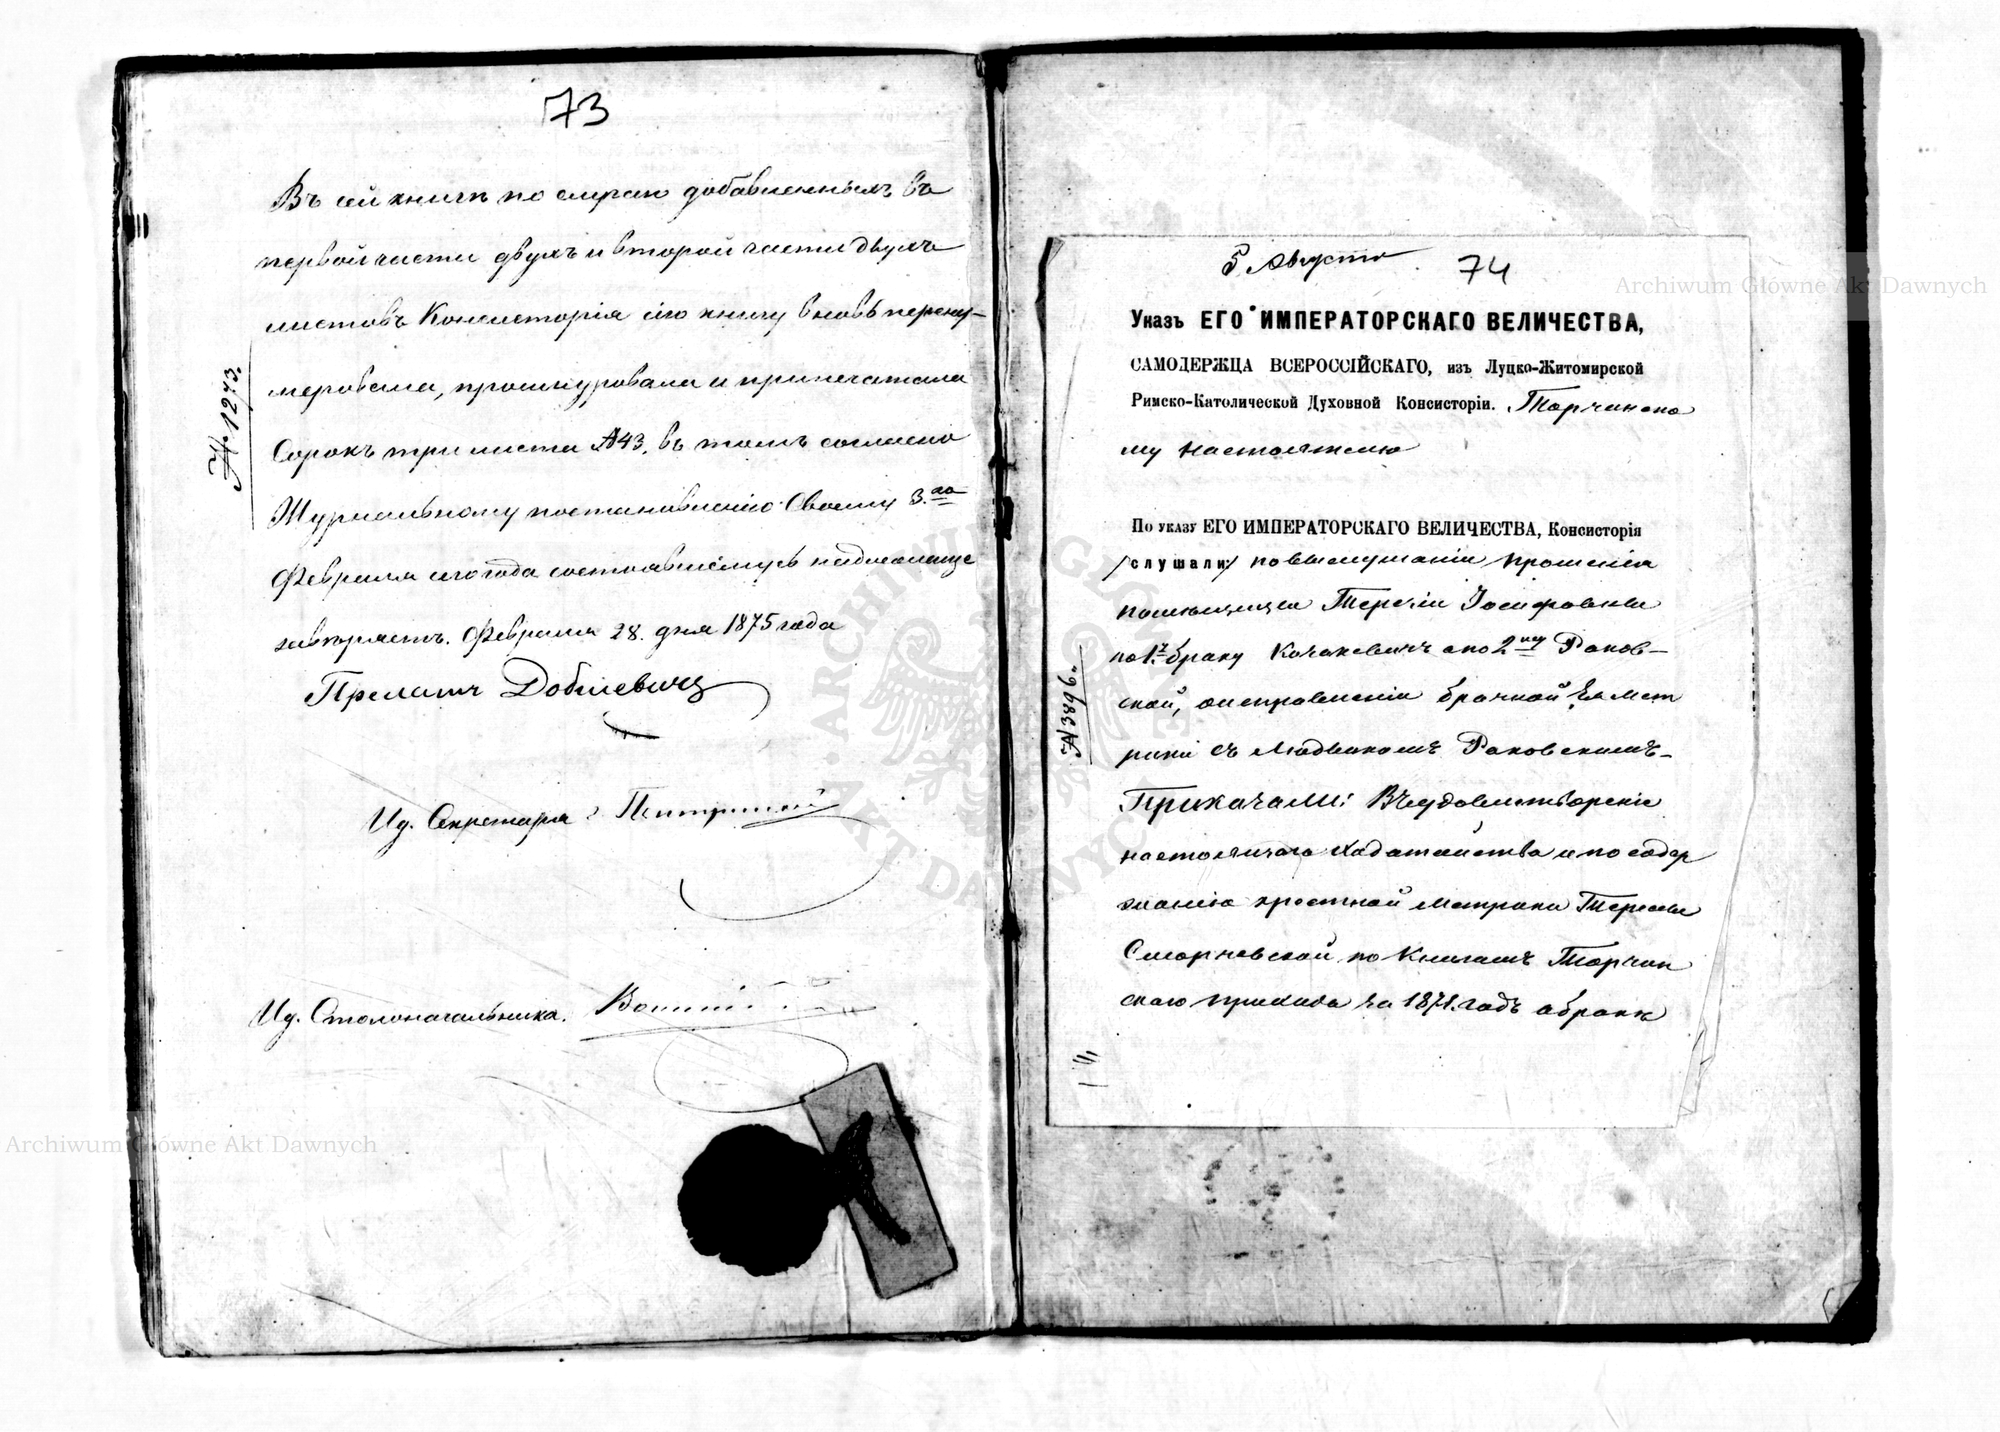 73
Въ сей книгѣ по случаю добавленныхъ въ
первой части двухъ и второй части двухъ
листовъ Консисторія сію книгу вновь перену-
меровала, прошнуровала и припечатала
Сорокъ три листа №43. въ томъ согласно
Журнальному постановленію своему 3.го
Февраля сего года состоявшемуся надлежаще
завѣряетъ. Февраля 28. дня 1875 года
Прелатъ
Ид. Секретаря
Ид. Столоначальника.
№ 1243.
5 Августа
74
Указъ ЕГО ИМПЕРАТОРСКАГО ВЕЛИЧЕСТВА,
САМОДЕРЖЦА ВСЕРОССІЙСКАГО, изъ Луцко-Житомирской
Римско-Католической Духовной Консисторіи. Торчинско
му настоятелю
По указу ЕГО ИМПЕРАТОРСКАГО ВЕЛИЧЕСТВА, Консисторія
/слушали:/ по выслушаніи прошенія
помѣщицы Терезіи Іосифовны
по 1му браку а по 2му Раков-
ской, о исправленіи брачной Ея мет
рики съ Людвикомъ Раковскимъ-
Приказали: Въ удовлетвореніе
настоящаго ходатайства и по содер
жанію крестной метрики Терезы
по книгамъ Торчин
скаго прихода за 1871. годъ о бракѣ
№ 3896.
Archiwum Główne Akt Dawnych
Archiwum Główne Akt Dawnych
ARCHIWUM GŁÓWNE AKT DAWNYCH